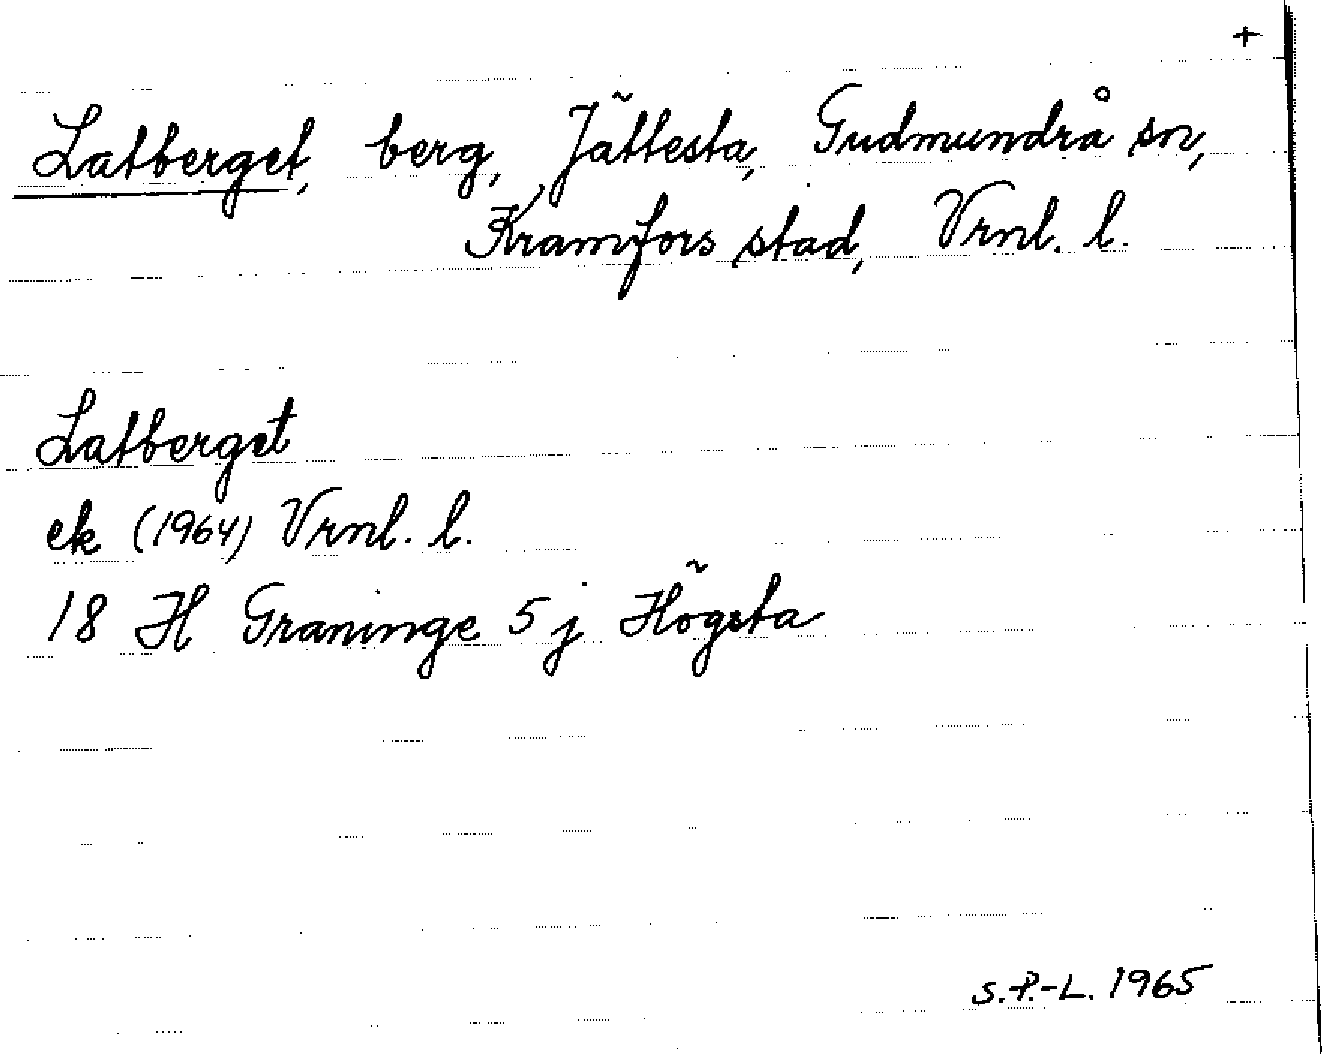 +
Latberget, berg, Jättesta, Gudmundrå sn,
Kramfors stad, Vrnl. l.
Latberget
ek (1964) Vrnl. l.
18 H Graninge 5 j Högsta
S.-P.-L. 1965